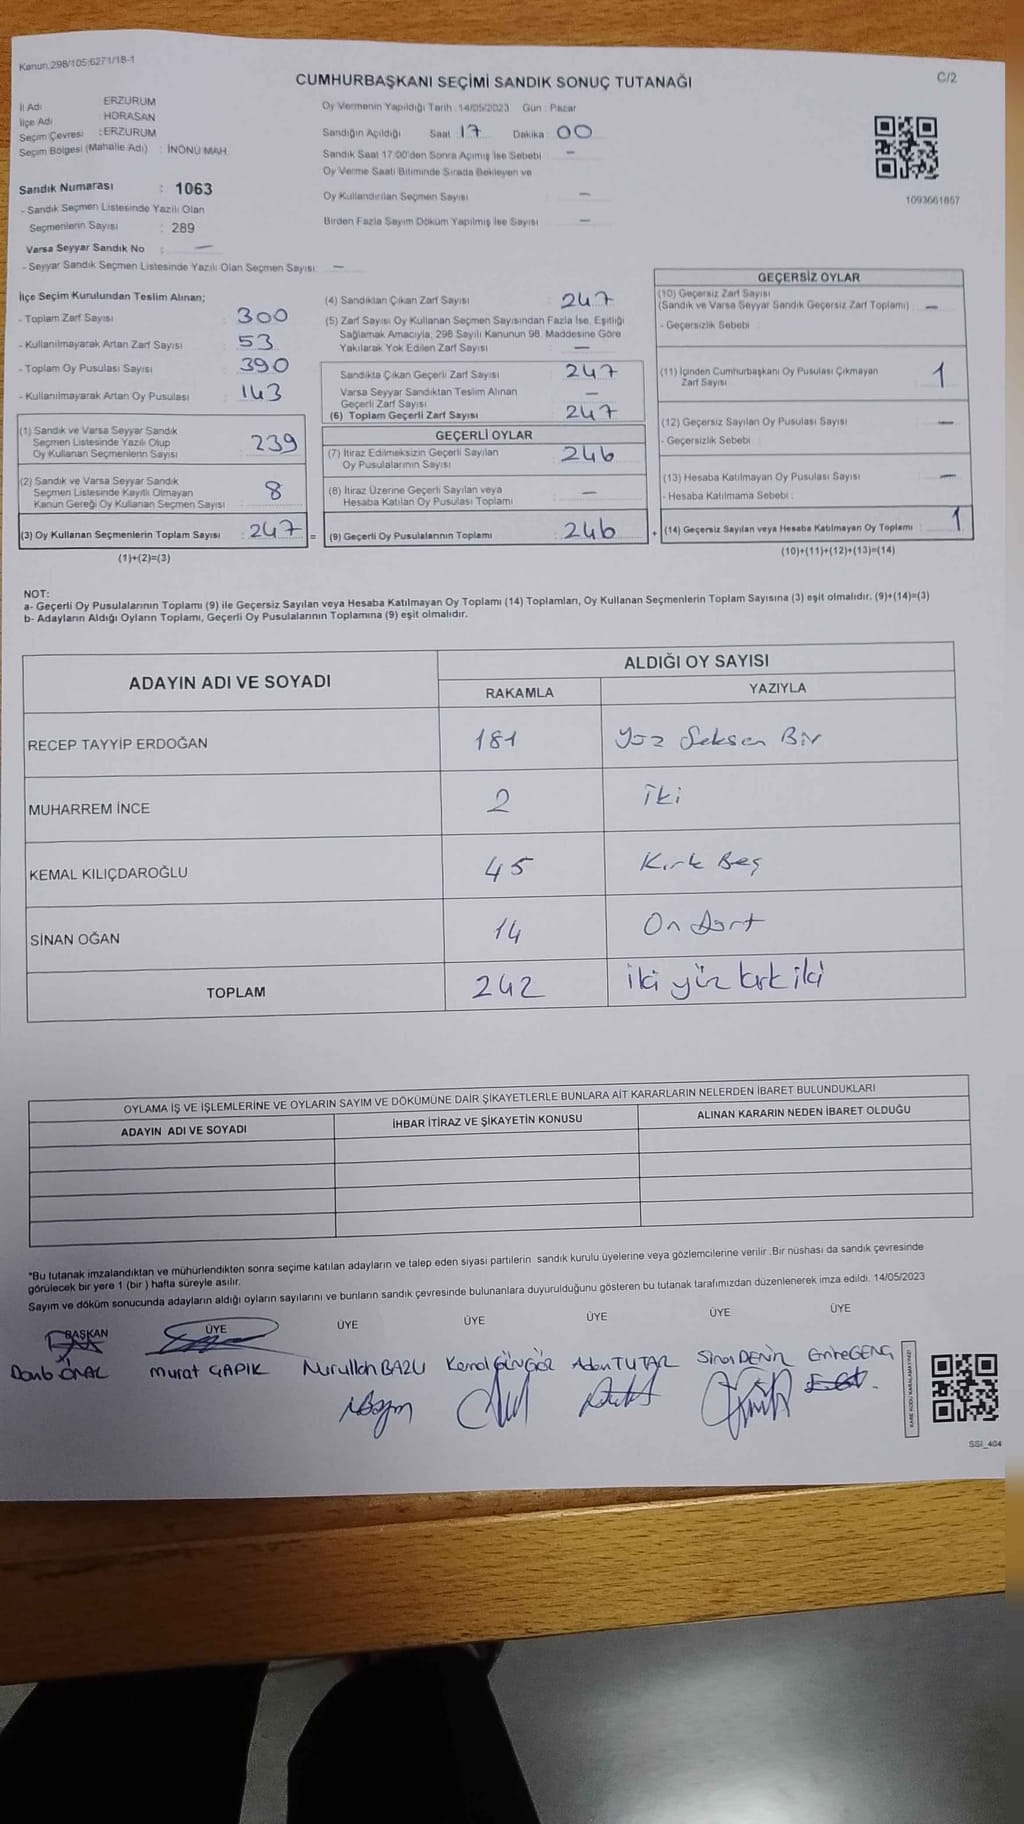 Kanun:298/105;6271/18-1
C/2
CUMHURBAŞKANI SEÇİMİ SANDIK SONUÇ TUTANAĞI
İl Adı ERZURUM
İlçe Adı HORASAN
Seçim Çevresi : ERZURUM
Seçim Bölgesi (Mahalle Adı) : İNÖNÜ MAH.
Sandık Numarası : 1063
- Sandık Seçmen Listesinde Yazılı Olan
Seçmenlerin Sayısı : 289
Varsa Seyyar Sandık No : —
- Seyyar Sandık Seçmen Listesinde Yazılı Olan Seçmen Sayısı: —
Oy Vermenin Yapıldığı Tarih : 14/05/2023 Gün : Pazar
Sandığın Açıldığı Saat 17 Dakika : 00
Sandık Saat 17:00'den Sonra Açımış İse Sebebi : —
Oy Verme Saati Bitiminde Sırada Bekleyen ve
Oy Kullandırılan Seçmen Sayısı : —
Birden Fazla Sayım Döküm Yapılmış İse Sayısı : —
1093661857
İlçe Seçim Kurulundan Teslim Alınan;
- Toplam Zarf Sayısı : 300
- Kullanılmayarak Artan Zarf Sayısı : 53
- Toplam Oy Pusulası Sayısı : 390
- Kullanılmayarak Artan Oy Pusulası : 143
(1) Sandık ve Varsa Seyyar Sandık
Seçmen Listesinde Yazılı Olup
Oy Kullanan Seçmenlerin Sayısı : 239
(2) Sandık ve Varsa Seyyar Sandık
Seçmen Listesinde Kayıtlı Olmayan
Kanun Gereği Oy Kullanan Seçmen Sayısı : 8
(3) Oy Kullanan Seçmenlerin Toplam Sayısı : 247 =
(1)+(2)=(3)
(4) Sandıktan Çıkan Zarf Sayısı : 247
(5) Zarf Sayısı Oy Kullanan Seçmen Sayısından Fazla İse, Eşitliği
Sağlamak Amacıyla, 298 Sayılı Kanunun 98. Maddesine Göre
Yakılarak Yok Edilen Zarf Sayısı : —
Sandıkta Çıkan Geçerli Zarf Sayısı : 247
Varsa Seyyar Sandıktan Teslim Alınan
Geçerli Zarf Sayısı : —
(6) Toplam Geçerli Zarf Sayısı : 247
GEÇERLİ OYLAR
(7) İtiraz Edilmeksizin Geçerli Sayılan
Oy Pusulalarının Sayısı : 246
(8) İtiraz Üzerine Geçerli Sayılan veya
Hesaba Katılan Oy Pusulası Toplamı : —
(9) Geçerli Oy Pusulalarının Toplamı : 246 +
GEÇERSİZ OYLAR
(10) Geçersiz Zarf Sayısı
(Sandık ve Varsa Seyyar Sandık Geçersiz Zarf Toplamı) : —
- Geçersizlik Sebebi :
(11) İçinden Cumhurbaşkanı Oy Pusulası Çıkmayan
Zarf Sayısı : 1
(12) Geçersiz Sayılan Oy Pusulası Sayısı : —
- Geçersizlik Sebebi :
(13) Hesaba Katılmayan Oy Pusulası Sayısı : —
- Hesaba Katılmama Sebebi :
(14) Geçersiz Sayılan veya Hesaba Katılmayan Oy Toplamı : 1
(10)+(11)+(12)+(13)=(14)
NOT:
a- Geçerli Oy Pusulalarının Toplamı (9) ile Geçersiz Sayılan veya Hesaba Katılmayan Oy Toplamı (14) Toplamları, Oy Kullanan Seçmenlerin Toplam Sayısına (3) eşit olmalıdır. (9)+(14)=(3)
b- Adayların Aldığı Oyların Toplamı, Geçerli Oy Pusulalarının Toplamına (9) eşit olmalıdır.
ADAYIN ADI VE SOYADI ALDIĞI OY SAYISI
RAKAMLA YAZIYLA
RECEP TAYYİP ERDOĞAN 181 Yüz Seksen Bir
MUHARREM İNCE 2 İki
KEMAL KILIÇDAROĞLU 45 Kırk Beş
SİNAN OĞAN 14 On dört
TOPLAM 242 iki yüz kırk iki
OYLAMA İŞ VE İŞLEMLERİNE VE OYLARIN SAYIM VE DÖKÜMÜNE DAİR ŞİKAYETLERLE BUNLARA AİT KARARLARIN NELERDEN İBARET BULUNDUKLARI
ADAYIN ADI VE SOYADI İHBAR İTİRAZ VE ŞİKAYETİN KONUSU ALINAN KARARIN NEDEN İBARET OLDUĞU
*Bu tutanak imzalandıktan ve mühürlendikten sonra seçime katılan adayların ve talep eden siyasi partilerin sandık kurulu üyelerine veya gözlemcilerine verilir .Bir nüshası da sandık çevresinde
görülecek bir yere 1 (bir ) hafta süreyle asılır.
Sayım ve döküm sonucunda adayların aldığı oyların sayılarını ve bunların sandık çevresinde bulunanlara duyurulduğunu gösteren bu tutanak tarafımızdan düzenlenerek imza edildi. 14/05/2023
BAŞKAN ÜYE ÜYE ÜYE ÜYE ÜYE ÜYE
ÖNAL Murat ÇAPIK Nurullah BAZU Kemal GÜNGÖR Adem TUTAR Sinan DENİZ Emine GENÇ
KARE KODU KARALAMAYINIZ!
SSI_404